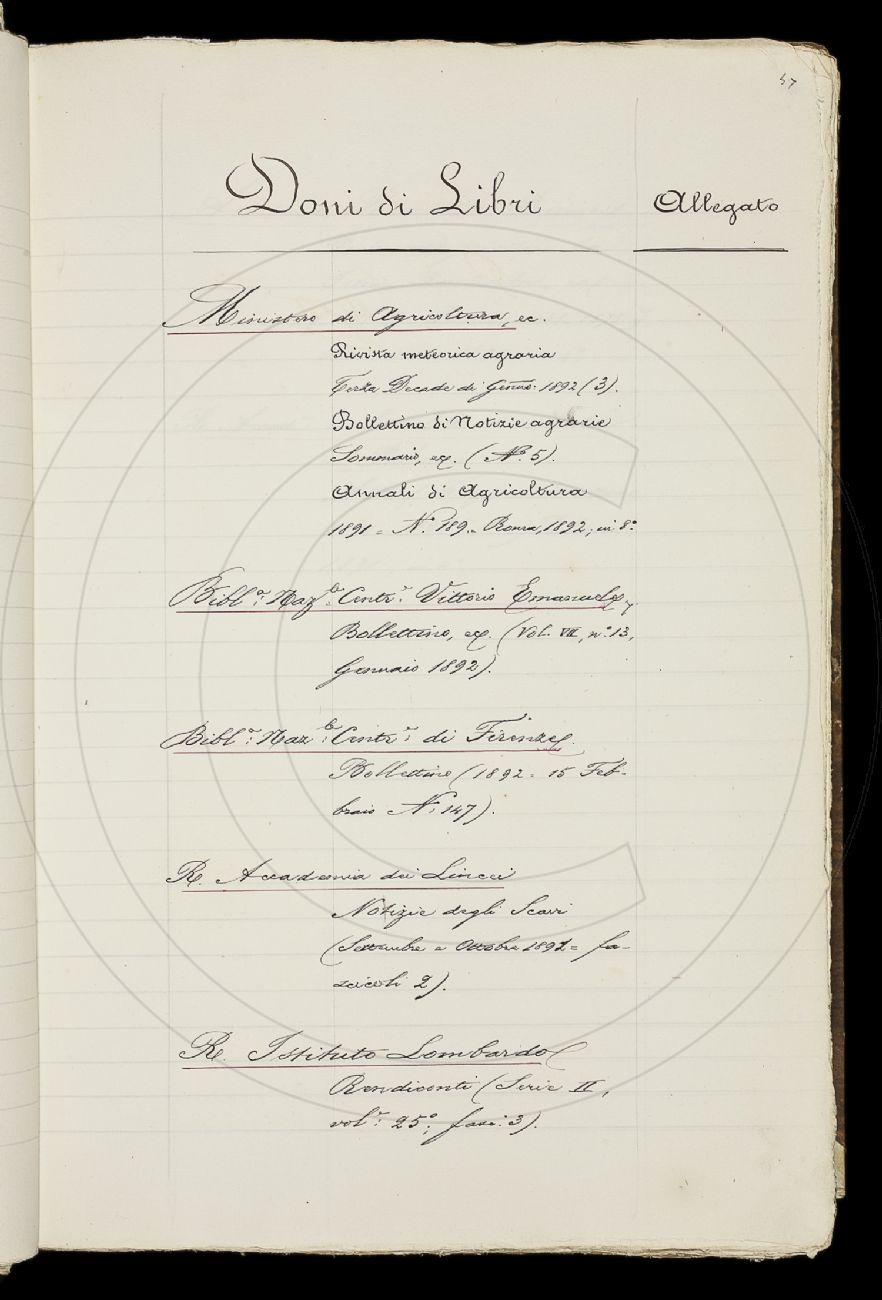 57
Doni di Libri
Allegato
Ministero di Agricoltura, ec.
Rivista meteorica agraria
Terza Decade di Genno: 1892 (3).
Bollettino di Notizie agrarie
Sommario, ec. (N.º 5).
Annali di Agricoltura
1891 = N.º 189. Roma, 1892; in 8.º
Bibl.ª: Naz.le: Centr.e: Vittorio Emanuele,
Bollettino, ec. (Vol. VII, n.º 13,
Gennaio 1892).
Bibl.ª: Naz.le: Centr.e: di Firenze.
Bollettino (1892 = 15 Feb-
braio N.º 147).
R. Accademia dei Lincei
Notizie degli Scavi
(Settembre e Ottobre 1891 = fa-
scicoli 2).
R. Istituto Lombardo
Rendiconti (Serie II,
vol.e: 25º; fasc. 3).